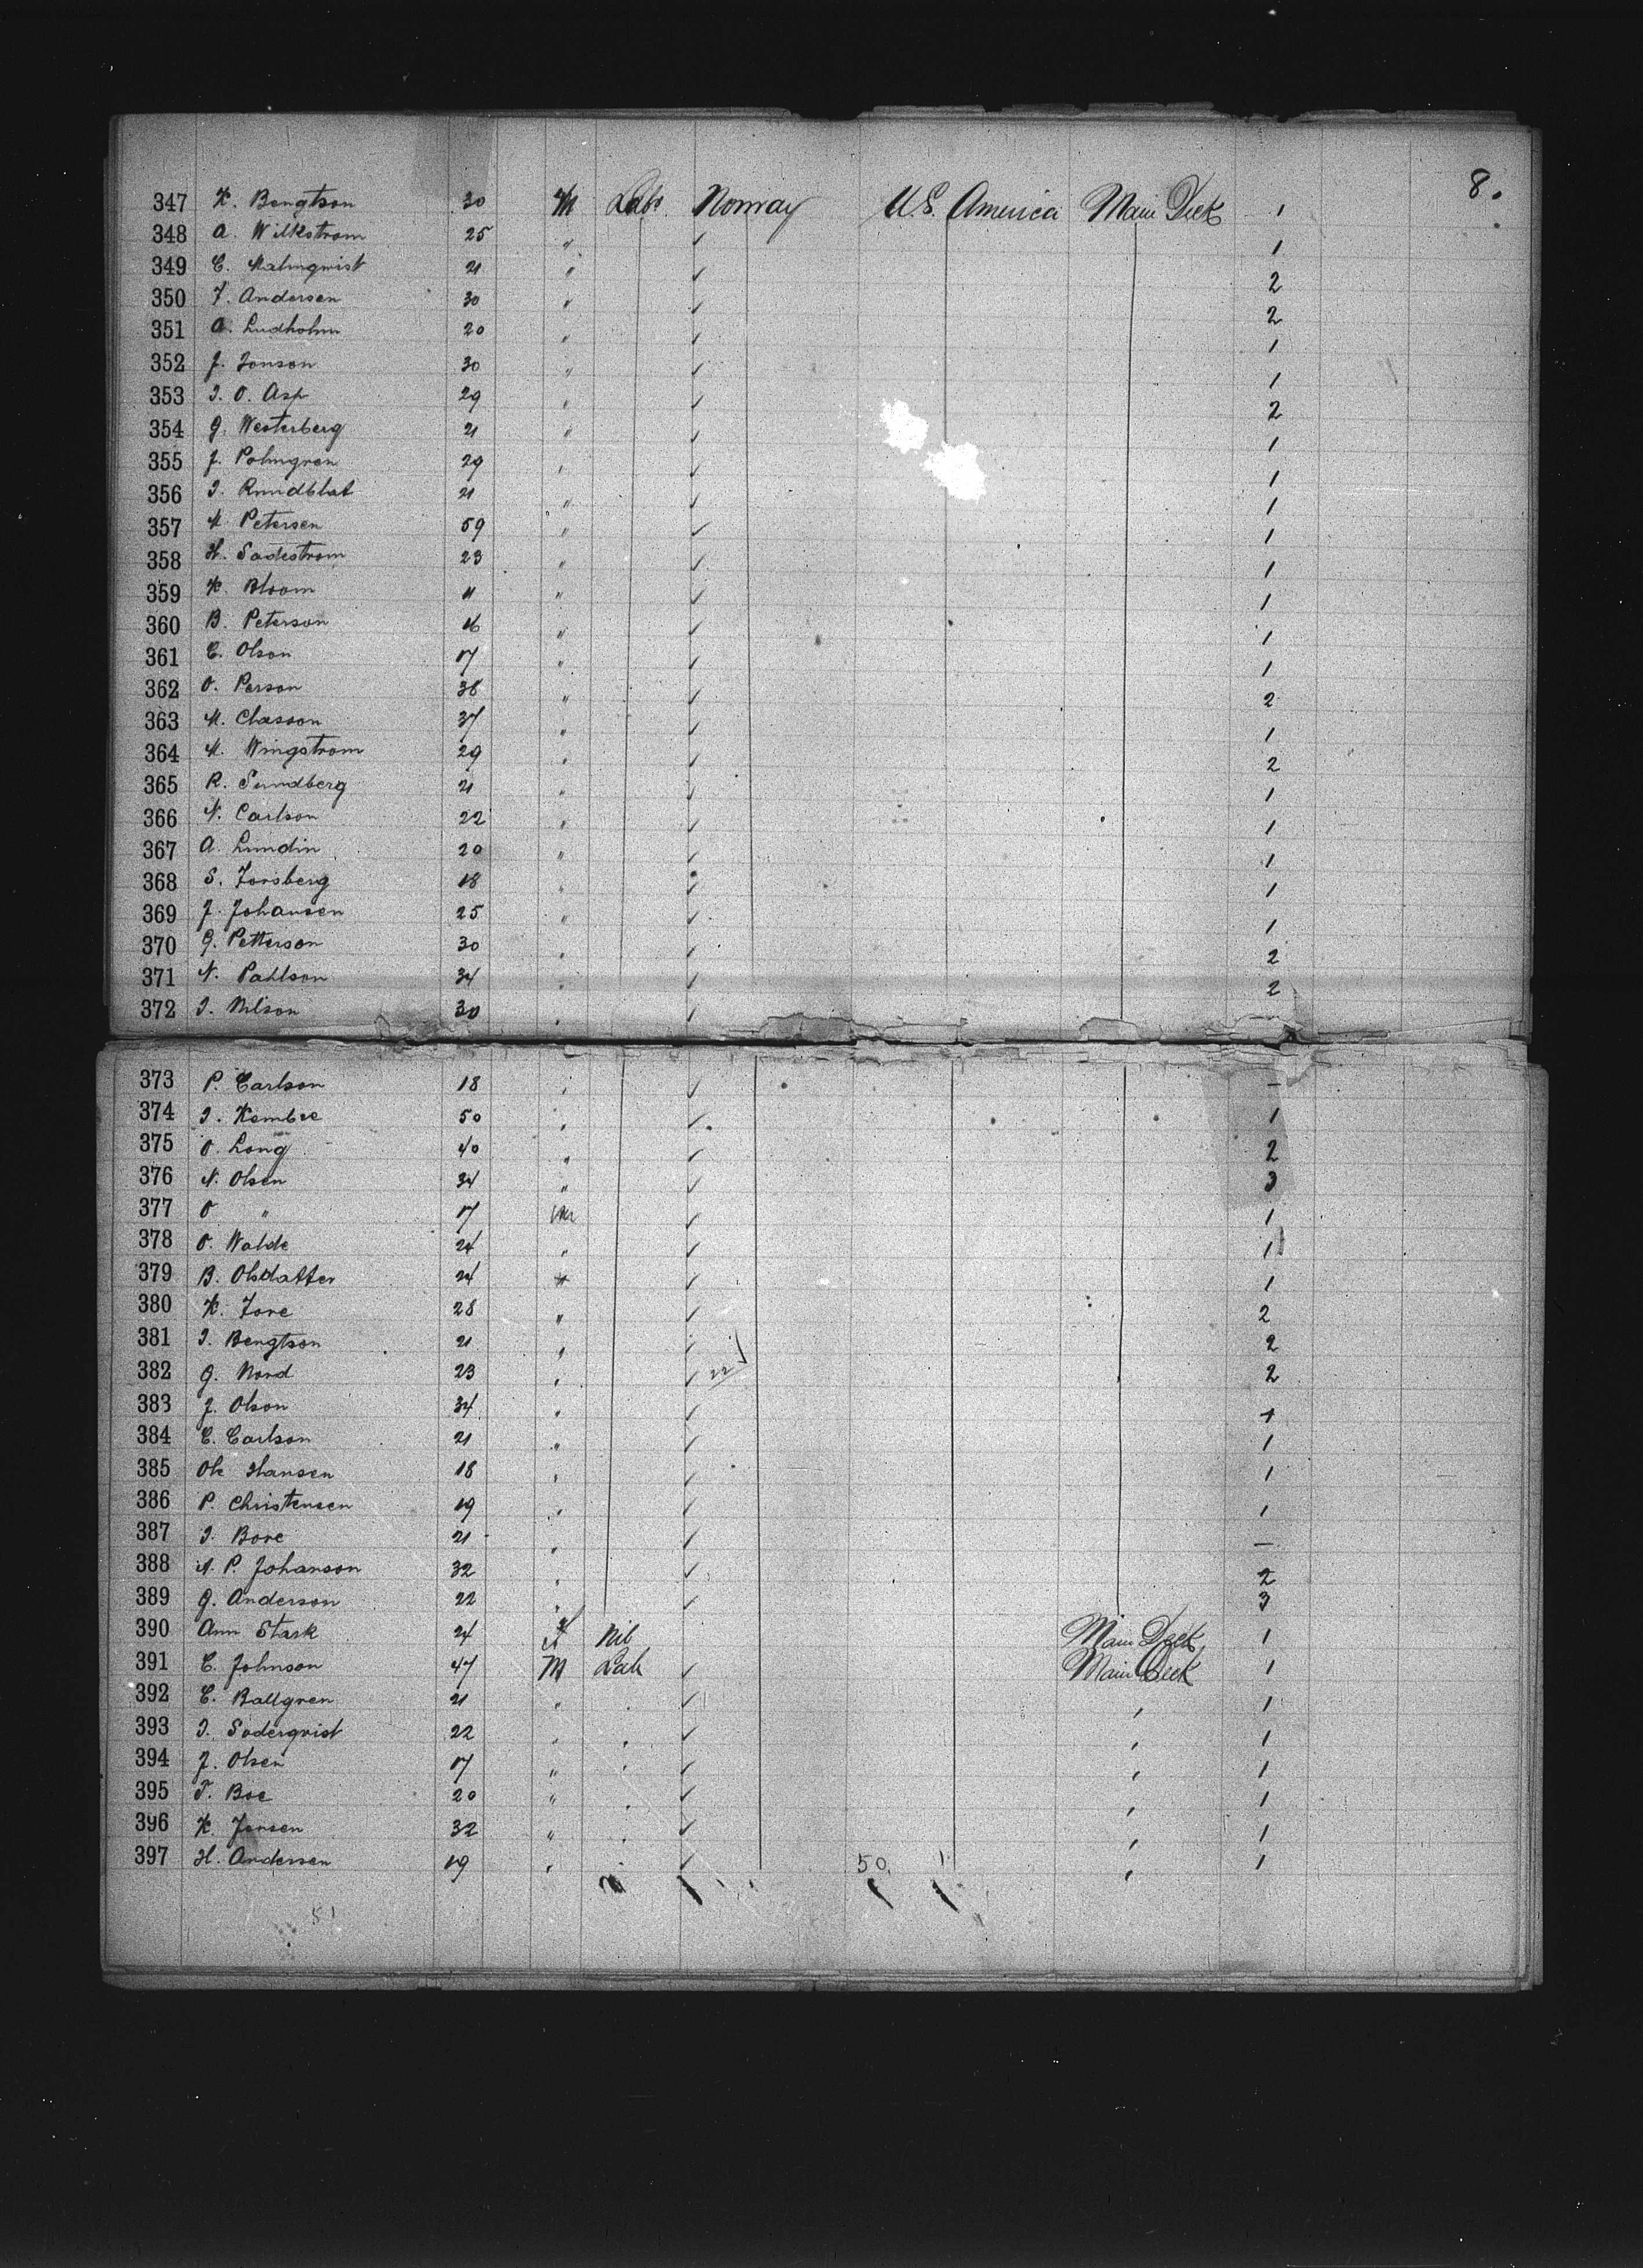 8.
347 K. Bengtson 30 M Labr. Norway U.S. America Main Deck 1
348 A. Wilkstrom 25 " ✓ 1
349 C. Malmqvist 21 " ✓ 2
350 F. Andersen 30 " ✓ 2
351 A. Lindholm 20 " ✓ 1
352 J. Jonson 30 " ✓ 1
353 I. O. Asp 29 " ✓ 2
354 G. Westerberg 21 " ✓ 1
355 J. Polmgren 29 " ✓ 1
356 I. Rundblat 21 " ✓ 1
357 M. Petersen 59 " ✓ 1
358 H. Sadestrom 23 " ✓ 1
359 K. Bloom 11 " ✓ 1
360 B. Peterson 16 " ✓ 1
361 C. Olson 17 " ✓ 1
362 O. Person 38 " ✓ 2
363 M. Classon 37 " ✓ 1
364 M. Wingstrom 29 " ✓ 2
365 R. Sundberg 21 " ✓ 1
366 N. Carlson 22 " ✓ 1
367 A. Lundin 20 " ✓ 1
368 S. Forsberg 18 " ✓ 1
369 J. Johansen 25 " ✓ 1
370 G. Petterson 30 " ✓ 2
371 N. Pahlson 34 " ✓ 2
372 I. Nilson 30 " ✓
373 P. Carlson 18 " ✓ –
374 I. Kembre 50 " ✓ 1
375 O. Long 40 " ✓ 2
376 N. Olsen 34 " ✓ 3
377 O " 17 ✓ 1
378 O. Walde 24 " ✓ 1
379 B. Olsdatter 24 ✓ 1
380 K. Fore 28 " ✓ 2
381 I. Bengtson 21 " ✓ 2
382 G. Nord 23 " ✓ 22 2
383 J. Olson 34 " ✓ 1
384 C. Carlson 21 " ✓ 1
385 Ole Hansen 18 " ✓ 1
386 P. Christensen 19 " ✓ 1
387 I. Bore 21 " ✓ –
388 A. P. Johanson 32 " ✓ 2
389 G. Anderson 22 " ✓ 3
390 Ann Stark 24 f Nil Main Deck 1
391 C. Johnson 47 M Lab ✓ Main Deck 1
392 C. Ballgren 21 " " ✓ " 1
393 I. Soderqvist 22 " " ✓ " 1
394 J. Olsen 17 " " ✓ " 1
395 T. Boe 20 " " ✓ " 1
396 K. Jensen 32 " " ✓ " 1
397 H. Andersen 19 " " ✓ 50 " 1
51